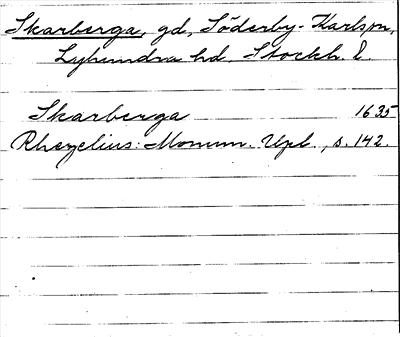 Skarberga, gd, Söderby-Karls, sn,
Lyhundra hd, Stockh. l.
Skarberga 1635
Rhezelius: Monum. Upl., s. 142.